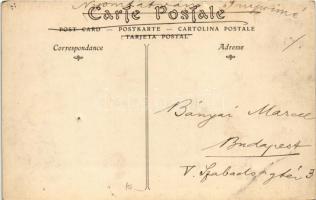 Nyomtatvány Imprimé
Carte Postale
POST CARD — POSTKARTE — CARTOLINA POSTALE
TARJETA POSTAL
Correspondance Adresse
Bányai Marcel
Budapest
V. Szabadság tér 3